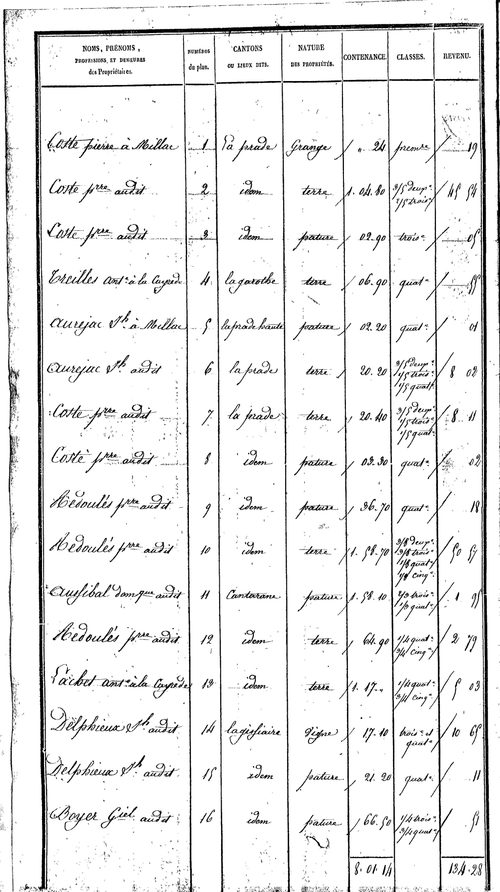 NOMS, PRÉNOMS, PROFESSIONS, ET DEMEURES des Propriétaires. NUMÉROS du plan. CANTONS OU LIEUX DITS. NATURE DES PROPRIÉTÉS. CONTENANCE. CLASSES. REVENU.
Coste pierre à Millac 1 La prade Grange " 24 premre 19
Coste prre audit 2 idem terre 1. 04. 80 3/5 deuxe 2/5 trois 45 54
Coste prre audit 3 idem pature 02. 90 trois 05
Treilles ante à la Cayrede 4 lagarothe terre 06. 90 quat 55
Aurejac Jh à Millac 5 la prade haute pature 02. 20 quat 01
Aurejac Jh audit 6 la prade terre 20. 20 3/5 deuxe 1/5 trois 1/5 quat 8 02
Coste prre audit 7 la prade terre 20. 40 3/5 deuxe 1/5 trois 1/5 quat 8 11
Coste prre audit 8 idem pature 03. 30 quat 02
Redoulés prre audit 9 idem pature 36. 70 quat 18
Redoulés prre audit 10 idem terre 1. 58. 70 3/8 deuxe 3/8 trois 1/8 quat 1/8 cinq 50 57
Aussibal domque audit 11 Cantarane pature 1. 58. 10 trois quat 1 95
Redoulés prre audit 12 idem terre 64. 90 1/4 quat 3/4 cinq 2 79
Lachet ante à la Cayrede 13 idem terre 1. 17. " 1/4 quat 3/4 cinq 5 03
Delphieux Jh audit 14 Vigne 17. 10 trois et quat 10 65
Delphieux Jh audit 15 idem pature 21. 20 quat 11
Boyer Giel audit 16 idem pature 66. 50 1/4 trois 3/4 quat 51
8. 01. 14 134. 28